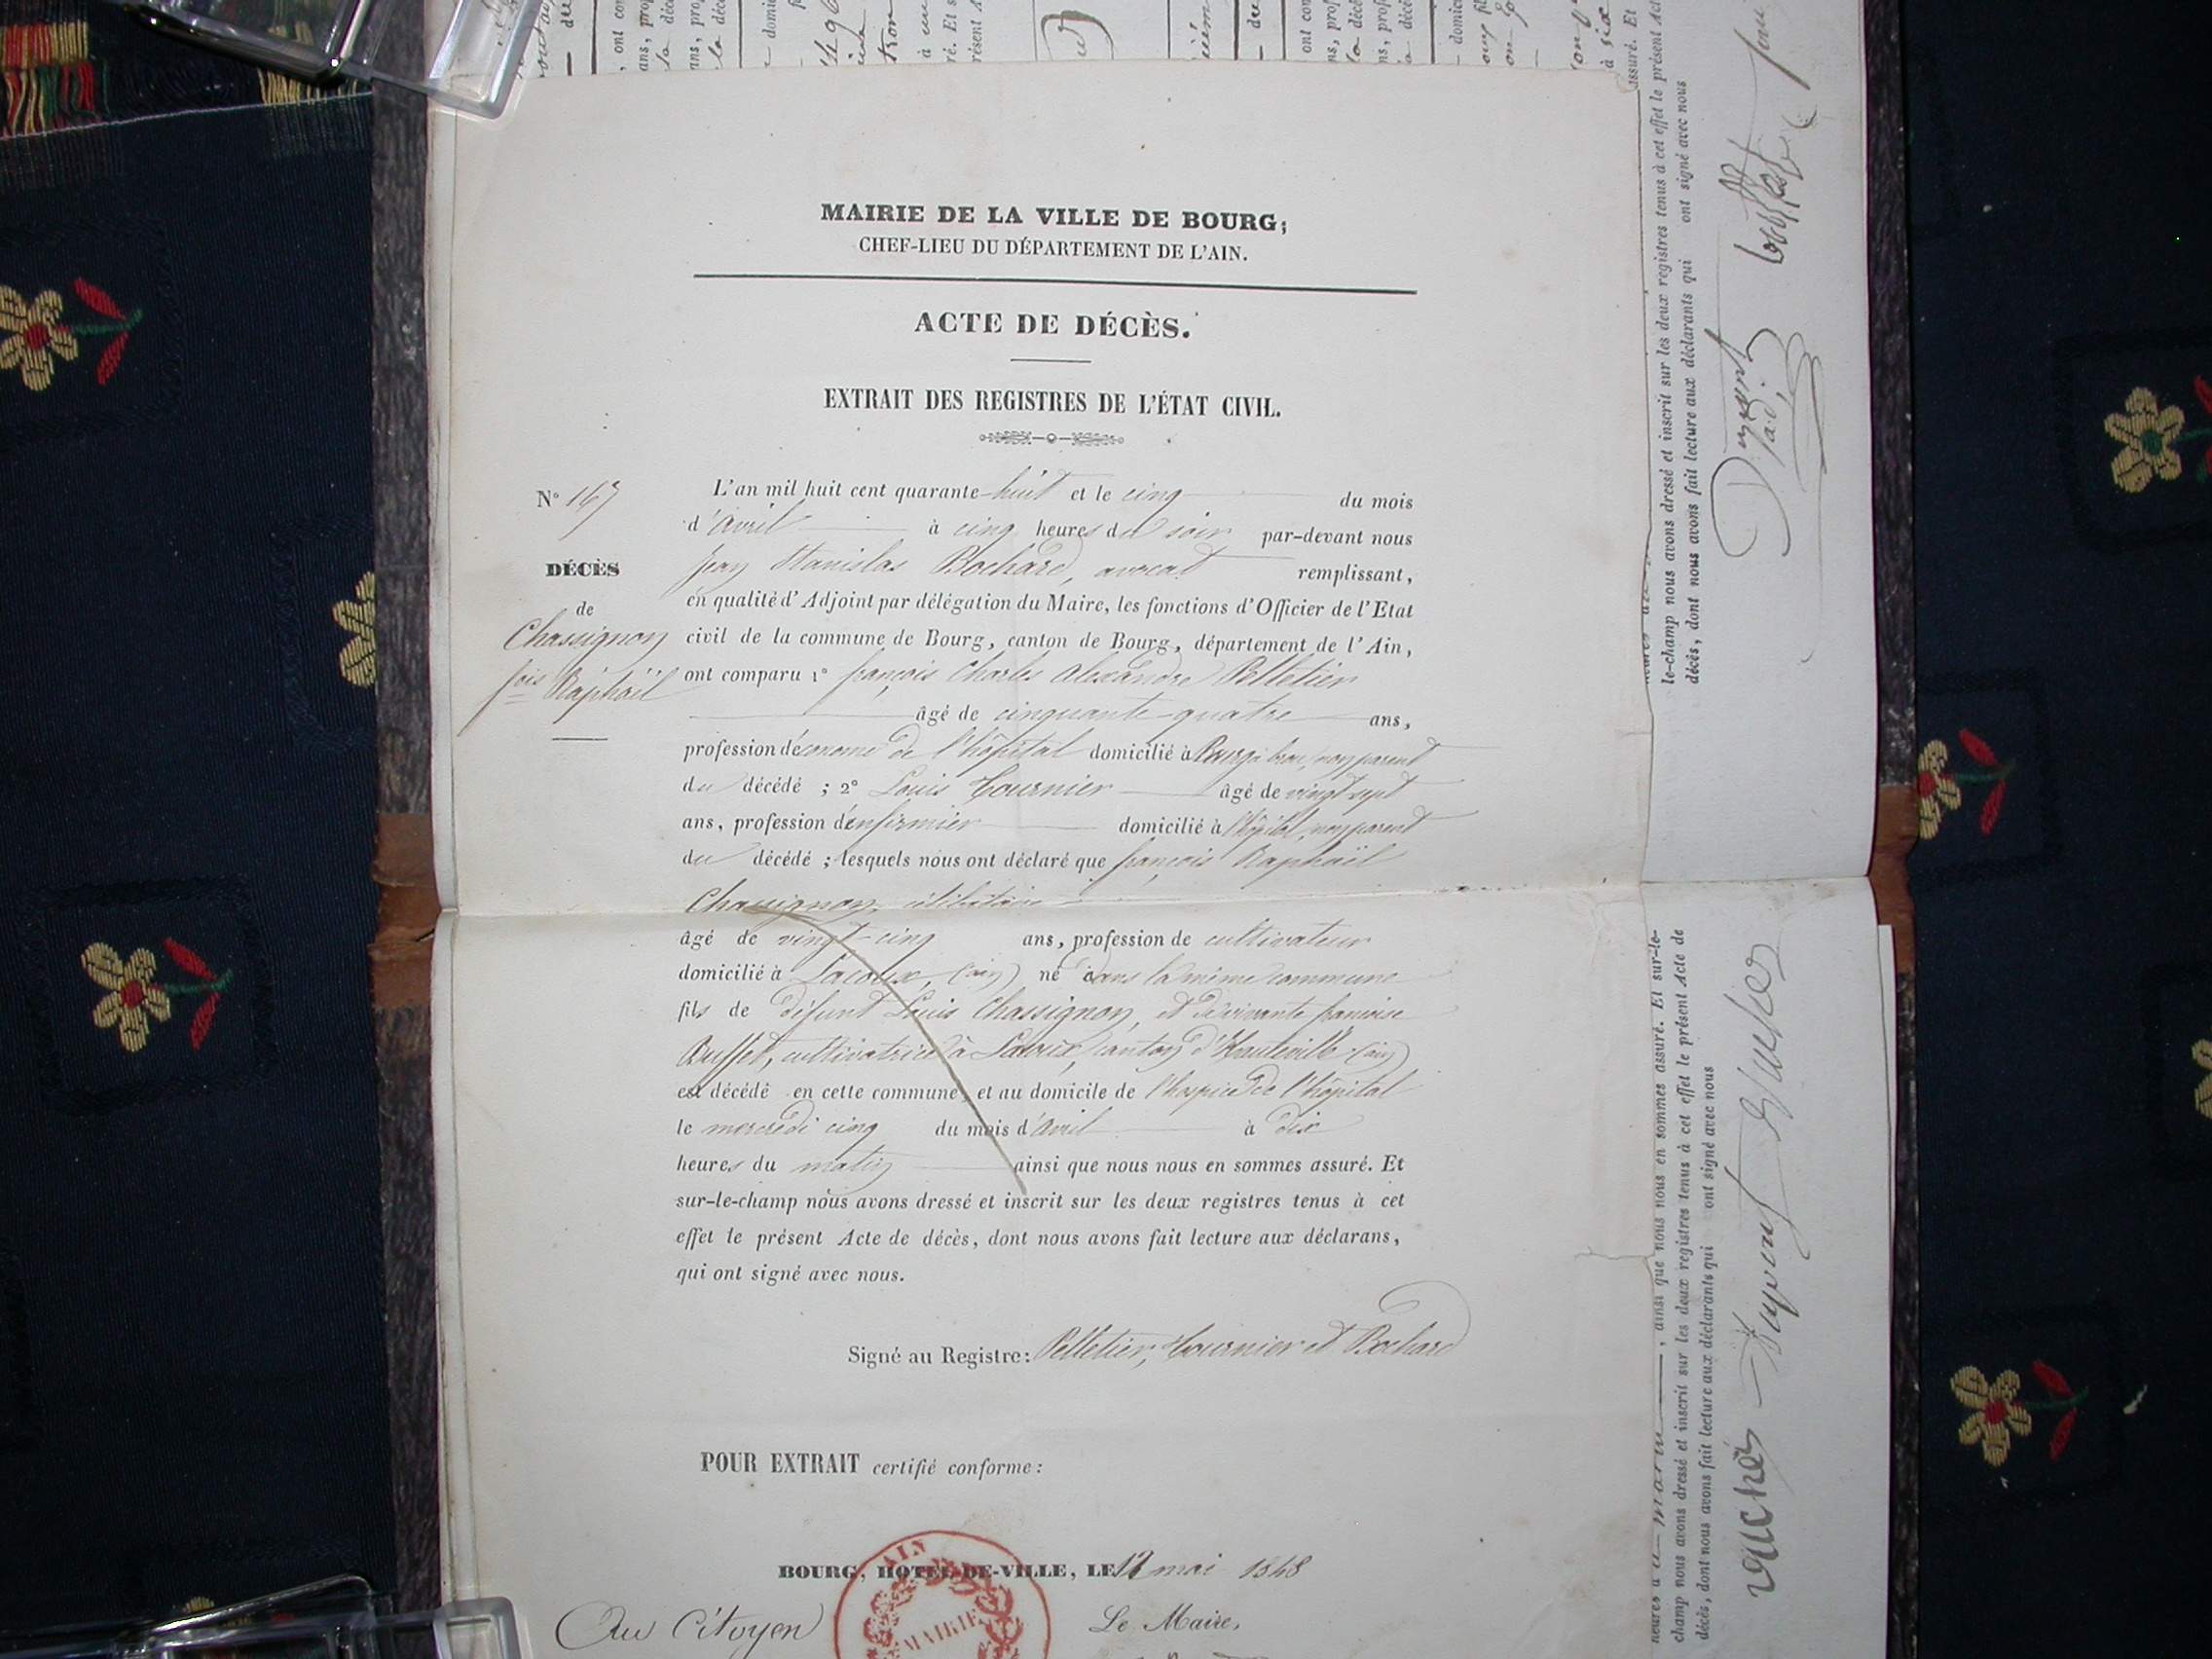 MAIRIE DE LA VILLE DE BOURG;
CHEF-LIEU DU DÉPARTEMENT DE L'AIN.
ACTE DE DÉCÈS.
EXTRAIT DES REGISTRES DE L'ÉTAT CIVIL.
N° 167
DÉCÈS
de
Chassignon
fois Raphaël
L'an mil huit cent quarante-huit et le cinq du mois
d'avril à cinq heures du soir par-devant nous
Jean Stanislas Bochard, avocat remplissant,
en qualité d'Adjoint par délégation du Maire, les fonctions d'Officier de l'Etat
civil de la commune de Bourg, canton de Bourg, département de l'Ain,
ont comparu 1° françois Charles Alexandre Pelletier
âgé de cinquante-quatre ans,
profession d'économe de l'hôpital domicilié à Bourg non parent
du décédé ; 2° Louis Tournier âgé de vingt sept
ans, profession d'enfirmier domicilié à l'hôpital, non parent
du décédé ; lesquels nous ont déclaré que françois Raphaël
Chassignon, célibataire
âgé de vingt-cinq ans, profession de cultivateur
domicilié à Lacoux, (ain) né dans la même commune
fils de défunt Louis Chassignon, et de vivante françoise
Buffet, cultivatrice à Lacoux, canton d'Hauteville (ain)
est décédé en cette commune, et au domicile de l'hospice de l'hôpital
le mercredi cinq du mois d'avril à dix
heures du matin ainsi que nous nous en sommes assuré. Et
sur-le-champ nous avons dressé et inscrit sur les deux registres tenus à cet
effet le présent Acte de décès, dont nous avons fait lecture aux déclarans,
qui ont signé avec nous.
Signé au Registre: Pelletier, Tournier et Bochard
POUR EXTRAIT certifié conforme:
BOURG, HOTEL-DE-VILLE, LE 12 mai 1848
Au Citoyen
Le Maire,
AIN
MAIRIE
le-champ nous avons dressé et inscrit sur les deux registres tenus à cet effet le présent Act
décès, dont nous avons fait lecture aux déclarants qui ont signé avec nous
, ainsi que nous nous en sommes assuré. Et sur-le-
champ nous avons dressé et inscrit sur les deux registres tenus à cet effet le présent Acte de
décès, dont nous avons fait lecture aux déclarants qui ont signé avec nous